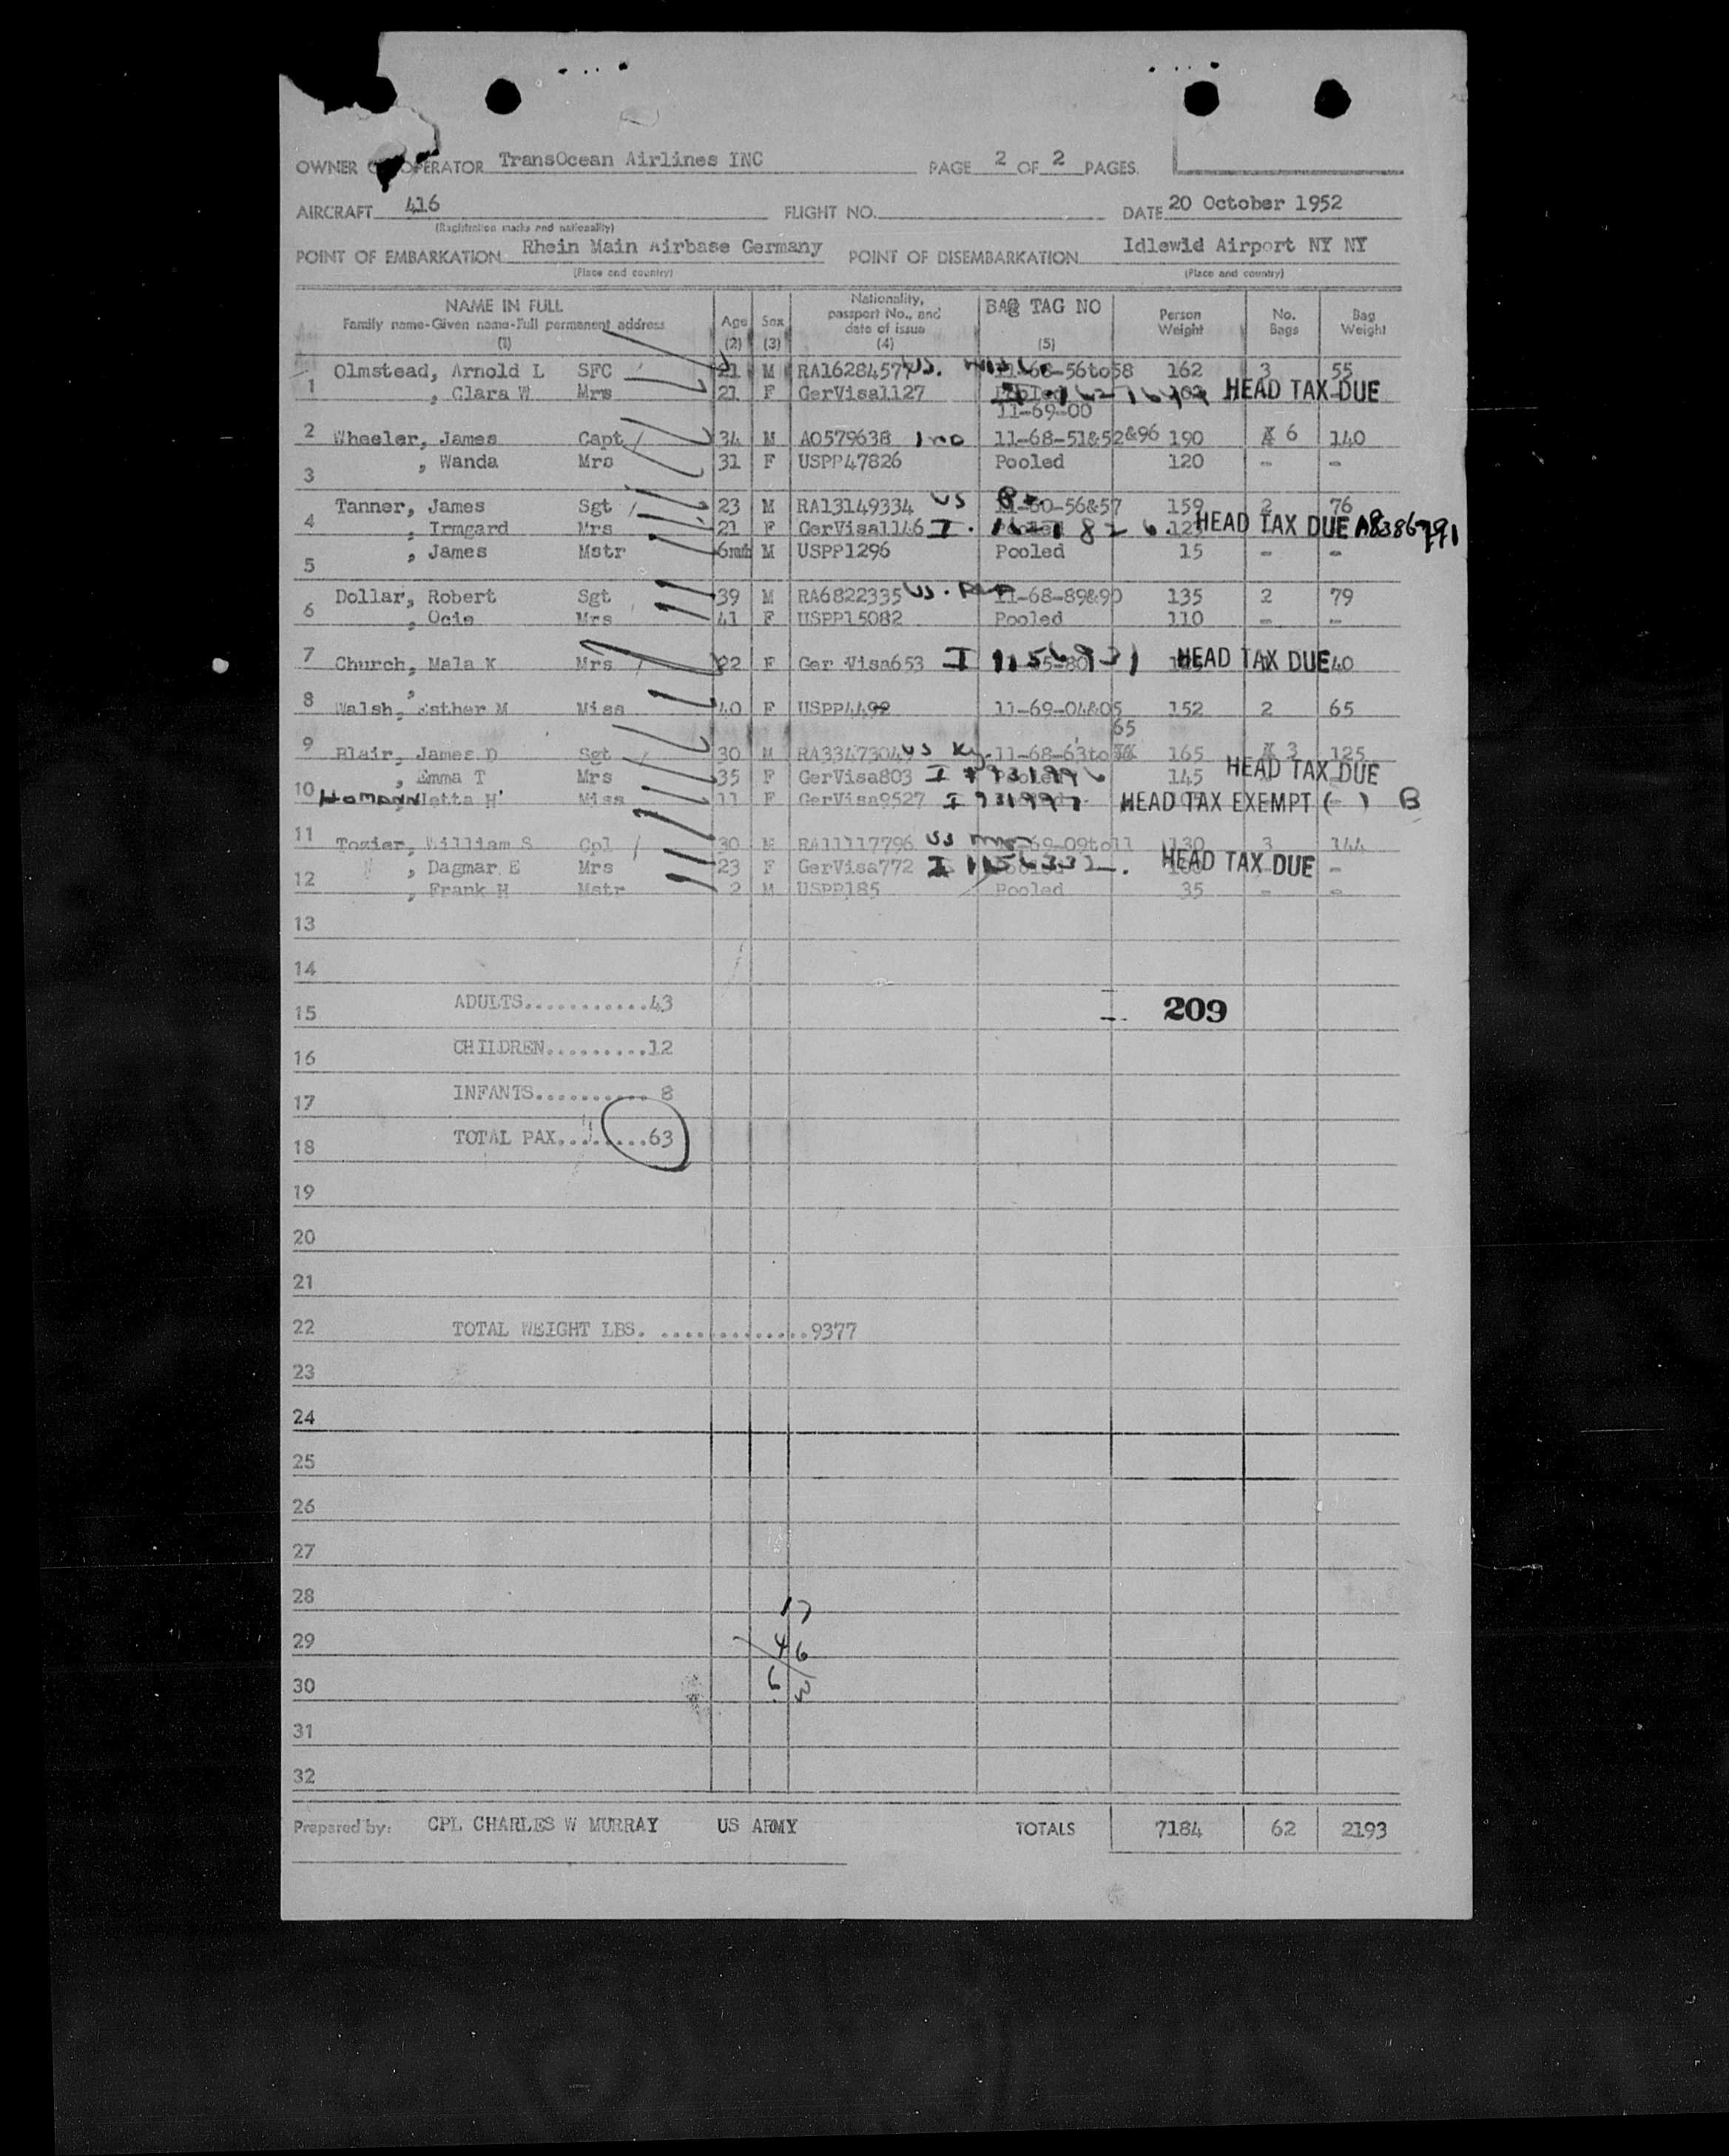 OWNER OR OPERATOR TransOcean Airlines INC PAGE 2 OF 2 PAGES.
AIRCRAFT 416 FLIGHT NO. DATE 20 October 1952
(Registration marks and nationality)
POINT OF EMBARKATION Rhein Main Airbase Germany POINT OF DISEMBARKATION Idlewid Airport NY NY
(Place and country) (Place and country)
NAME IN FULL Family name-Given name-Full permanent address (1) Age (2) Sex (3) Nationality, passport No., and date of issue (4) BAG TAG NO (5) Person Weight No. Bags Bag Weight
1 Olmstead, Arnold L SFC 21 M RA16284577 US. 11-68-56to58 162 3 55
, Clara W Mrs 21 F GerVisa1127 HEAD TAX DUE
11-69-00
2 Wheeler, James Capt 34 M AO579638 11-68-51&52&96 190 6 140
3 , Wanda Mrs 31 F USPP47826 Pooled 120 - -
Tanner, James Sgt 23 M RA13149334 US 11-60-56&57 159 2 76
4 , Irmgard Mrs 21 F GerVisa1146 I. HEAD TAX DUE A8386791
5 , James Mstr 6mth M USPP1296 Pooled 15 - -
Dollar, Robert Sgt 39 M RA6822335 US. 11-68-89&90 135 2 79
6 , Ocie Mrs 41 F USPP15082 Pooled 110 - -
7 Church, Mala K Mrs 22 F Ger Visa653 I HEAD TAX DUE 40
8 Walsh, Esther M Miss 40 F USPP4492 11-69-04&05 152 2 65
65
9 Blair, James D Sgt 30 M RA33473049 US Ky. 11-68-63to 165 3 125
, Emma T Mrs 35 F GerVisa803 I 145 HEAD TAX DUE
10 Jetta H Miss 11 F GerVisa9527 I 931997 HEAD TAX EXEMPT ( - ) B
11 Tozier, William S Cpl 30 M RA11117796 US 69-09to11 130 3 144
, Dagmar E Mrs 23 F GerVisa772 I HEAD TAX DUE -
12 , Frank H Mstr 2 M USPP185 Pooled 35 - -
13
14
15 ADULTS...........43 209
16 CHILDREN.........12
17 INFANTS.......... 8
18 TOTAL PAX........63
19
20
21
22 TOTAL WEIGHT LBS. .............9377
23
24
25
26
27
28 17
29 46
30 63
31
32
Prepared by: CPL CHARLES W MURRAY US ARMY TOTALS 7184 62 2193